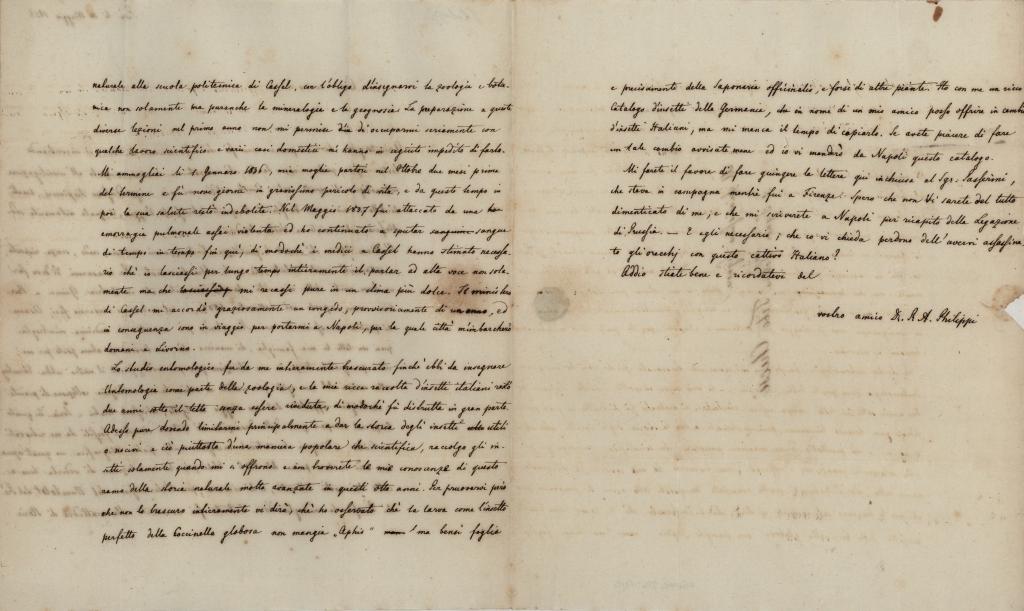 naturale alla scuola politecnica di Cassel, con l'obligo d'insegnarvi la zoologia e bota-
nica non solamente ma puranche la mineralogia e la geognosia. La preparazione a queste
diverse lezioni nel primo anno non mi permise d'ocuparmi seriamente con
qualche lavoro scientifico e varii casi domestici m'hanno in seguito impedito di farlo.
Mi ammogliai li 1. Gennaro 1836, mia moglie partorì nel Ottobre due mesi prima
del termine e fu nove giorni in gravissimo pericolo di vita, e da questo tempo in
poi la sua salute restò indebolita. Nel Maggio 1837 fui attaccato da una
emorragia pulmonale assai violenta ed ho continuato a sputar sangue
di tempo in tempo fin quì, di modochè i medici a Cassel hanno stimato necessa-
rio ch'io lasciassi per lungo tempo intieramente il parlar ad alta voce non sola-
mente ma che mi recassi pure in un clima più dolce. Il ministero
di Cassel mi accordò graziosamente un congedo, provvisoriamente di un anno, ed
in conseguenza sono in viaggio per portarmi a Napoli, per la quale città m'imbarcherò
domani a Livorno.
Lo studio entomologico fu da me intieramente trascurato finchè ebbi da insegnare
l'entomologia come parte della zoologia, e la mia ricca raccolta d'insetti italiani restò
due anni sotto il tetto senza essere riveduta, di modochè fù distrutta in gran parte.
Adesso pure dovendo limitarmi principalmente a dar la storia degli insetti utili
o nocivi e ciò piuttosto d'una maniera popolare che scientifica, raccolgo gli in-
setti solamente quando mi si offrono e non troverete le mie conoscenze di questo
ramo della storia naturale molto avanzate in questi otto anni. Per provarvi però
che non lo trascuro intieramente vi dirò, che ho osservato che la larva come l'insetto
perfetto della Coccinella globosa non mangia „Aphis" ma bensì foglie
e precisamente della Saponaria officinalis, e forse di altre piante. Ho con me un ricco
Catalogo d'insetti della Germania, che in nome di un mio amico posso offrire in cambio
d'insetti Italiani, ma mi manca il tempo di copiarlo. Se avete piacere di fare
un tale cambio avvisatemene ed io vi manderò da Napoli questo catalogo.
Mi farete il favore di fare giungere la lettera qui inchiusa al Sgr. Passerini,
che stava in campagna mentre fui a Firenze. Spero che non Vi sarete del tutto
dimenticato di me, e che mi scriverete a Napoli per ricapito della Legazione
di Prussia. — È egli necessario, che io vi chieda perdono dell'avervi assassina-
to gli orecchj con questo cattivo Italiano?
Addio state bene e ricordatevi del
vostro amico Dr. R. A. Philippi